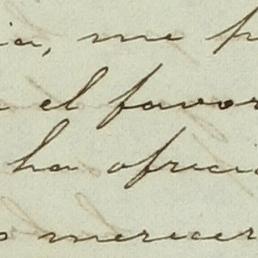 ia, me p
a el favor
ha ofreci
o merecer